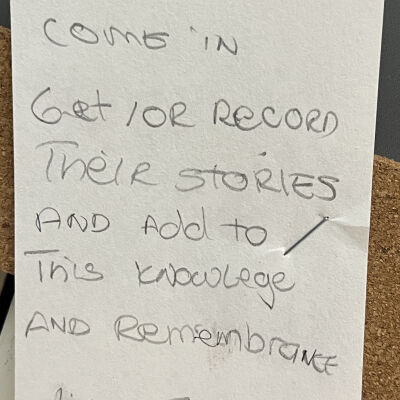 COME IN
Get / OR RECORD
THEIR STORIES
AND Add to
THIS KNOWLEGE
AND RemembrANCE